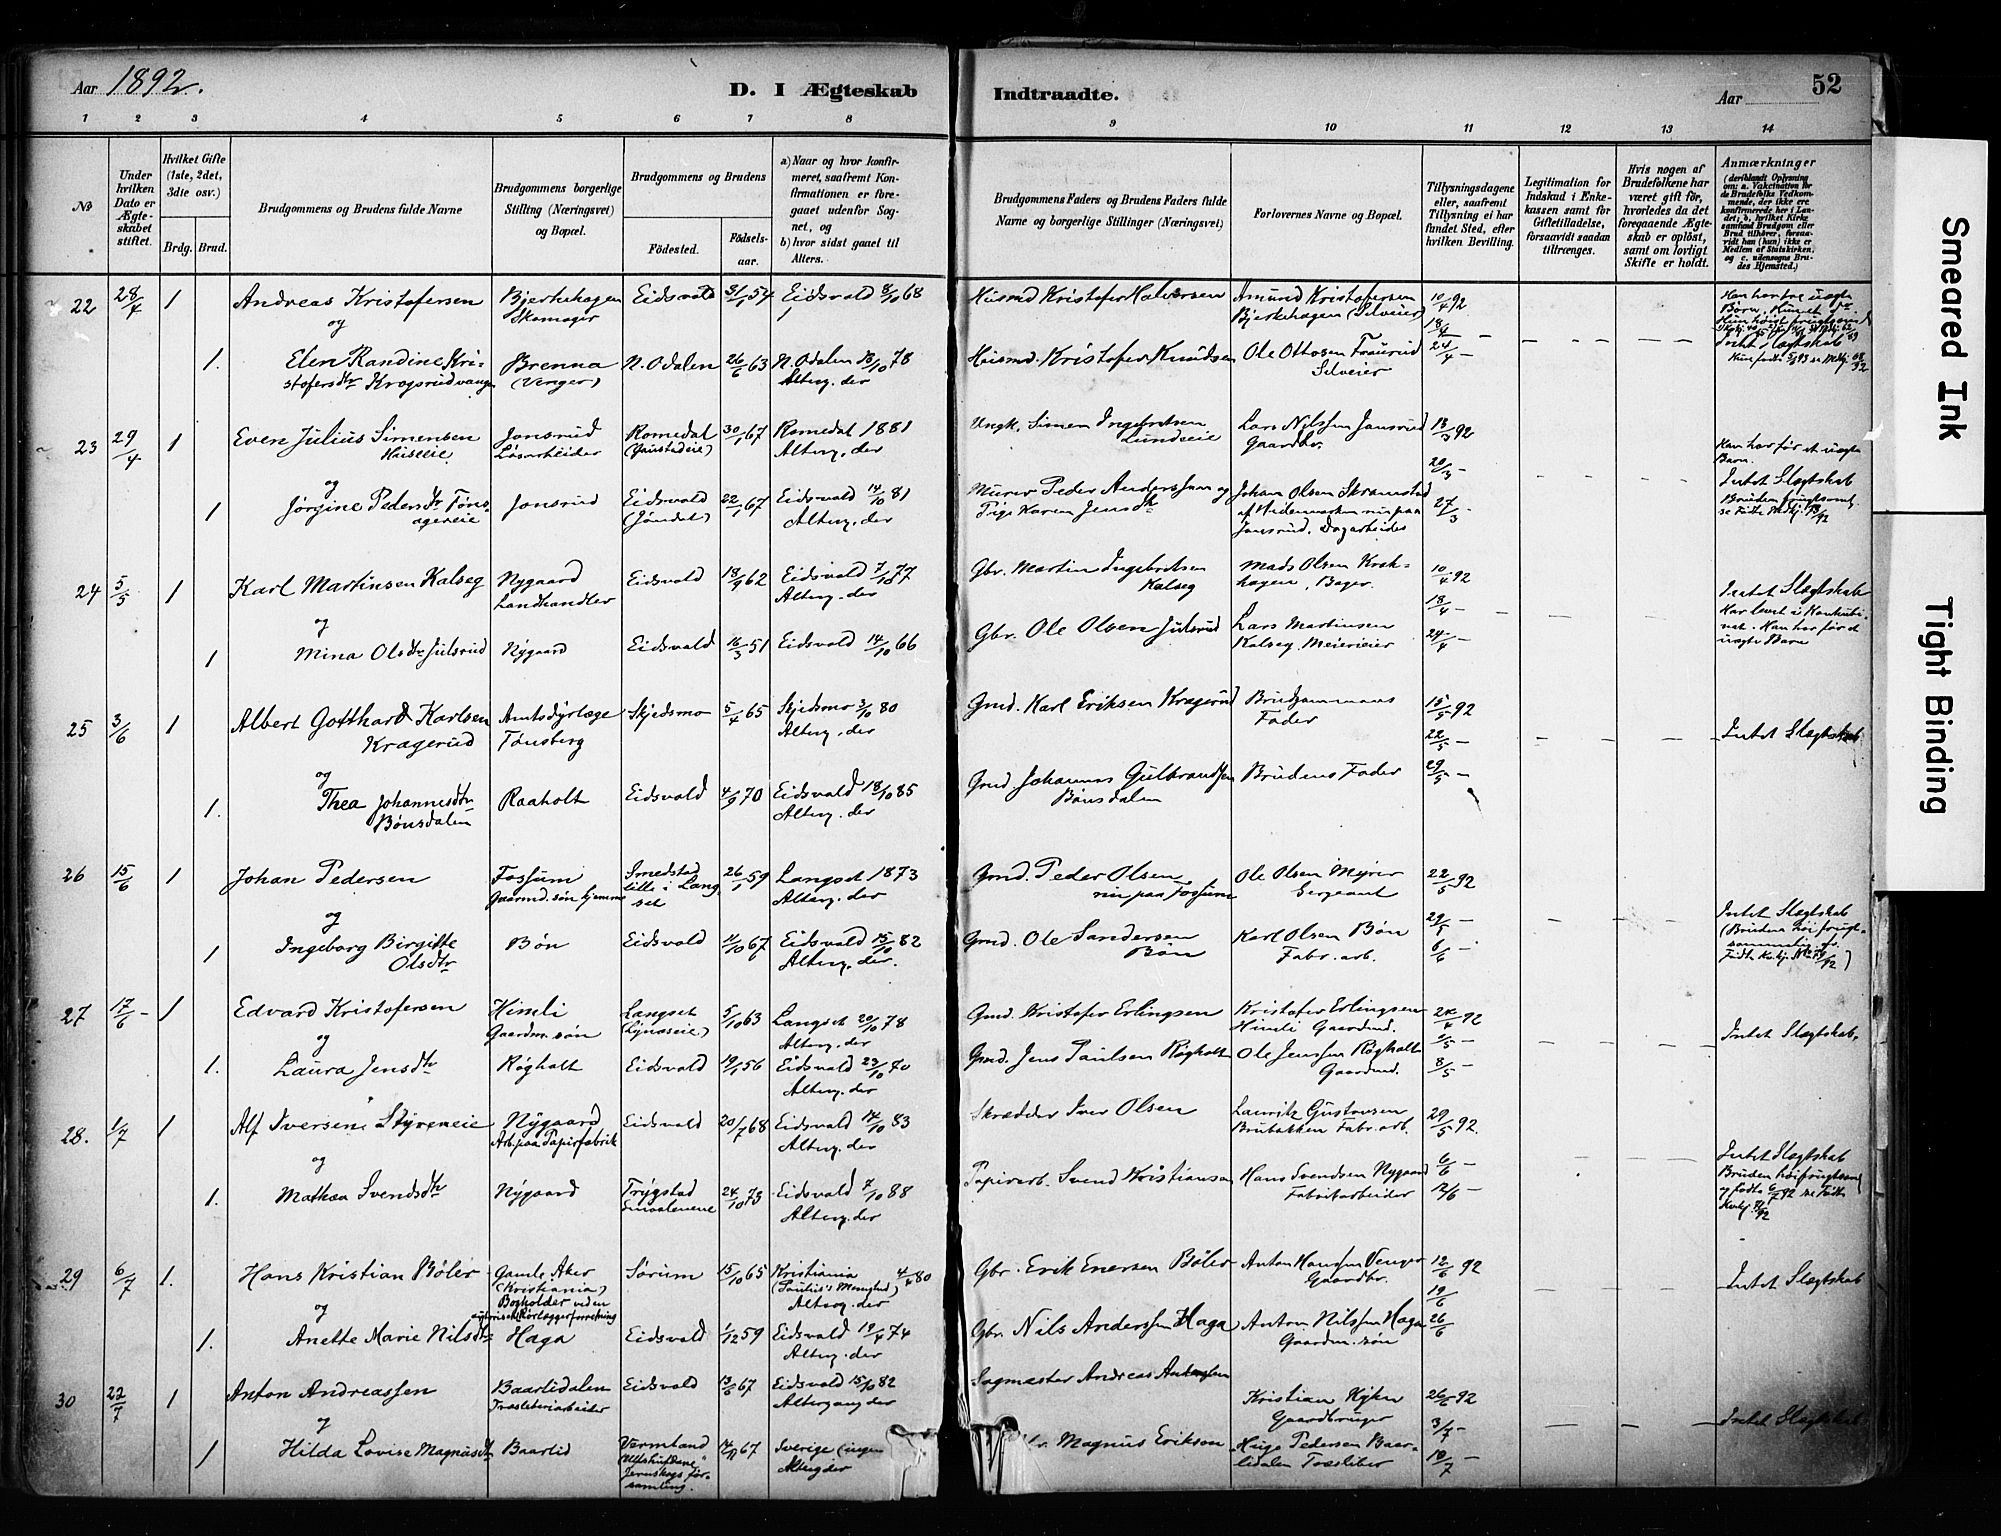 Aar 1892.
D. I Ægteskab
Indtraadte.
Aar
52
1 2 3 4 5 6 7 8
9 10 11 12 13 14
No
Under hvilken Dato er Ægteskabet stiftet.
Hvilket Gifte (1ste, 2det, 3die osv.)
Brdg. Brud.
Brudgommens og Brudens fulde Navne
Brudgommens borgerlige Stilling (Næringsvei) og Bopæl.
Brudgommens og Brudens
Fødested.
Fødselsaar.
a) Naar og hvor konfirmeret, saafremt Konfirmationen er foregaaet udenfor Sognet, og
b) hvor sidst gaaet til Alters.
Brudgommens Faders og Brudens Faders fulde Navne og borgerlige Stillinger (Næringsvei)
Forlovernes Navne og Bopæl.
Tillysningsdagene eller, saafremt Tillysning ei har fundet Sted, efter hvilken Bevilling.
Legitimation for Indskud i Enkekassen samt for Giftetilladelse, forsaavidt saadan tiltrænges.
Hvis nogen af Brudefolkene har været gift før, hvorledes da det foregaaende Ægteskab er opløst, samt om lovligt Skifte er holdt.
Anmærkninger (deriblandt Oplysning om: a. Vakcination for de Brudefolks Vedkommende, der ikke ere konfirmerede her i Landet; b. hvilket Kirkesamfund Brudgom eller Brud tilhører, forsaavidt han (hun) ikke er Medlem af Statskirken, og c. udensogns Brudes Hjemsted.)
22 28/7 1 Andreas Kristofersen Bjerkehagen Eidsvold 31/1 54 Eidsvold 8/10 68 Husmd Kristofer Halvorsen Amund Kristofersen 10/4 92
og Skomager Bjerkehagen (Silveier) 18/4
1. Elen Randine Kristofersdtr Krogsrudvangen Brenna (Venger) N. Odalen 26/6 63 N. Odalen 13/10 78 Alterg. der Husmd. Kristofer Knudsen Ole Ottosen Silveier 24/4 –
23 29/4 1 Even Julius Simensen Huseeie Jonsrud Løsarbeider Romedal 30/1 67 Romedal 1881 Alterg. der Ungk. Simen Ingebretsen Lundeeie Lars Nilssen Jonsrud Gaardbr. 13/3 92
Han har før et uægte Barn.
og 20/3 –
1 Jørgine Pedersdtr Jonsrud Eidsvold (Jøndal) 22/1 67 Eidsvold 14/10 81 Alterg. der Murer Peder Anderssen og Pige Karen Jensdtr Johan Olsen Skramstad af Hedemarken nu paa Jonsrud. Dagarbeider 27/3
Intet Slægtskab
24 5/5 1 Karl Martinsen Kalseg Nygaard Landhandler Eidsvold 18/9 62 Eidsvold 7/10 77 Alterg. der Gbr. Martin Ingebretsen Kalseg Mads Olsen Krokhagen, Bager. 10/4 92
og 18/4 –
1 Mina Olsdtr Julsrud Nygaard Eidsvold 16/3 51 Eidsvold 14/10 66 Gbr. Ole Olsen Julsrud Lars Martinsen Kalseg. Meierieier 24/4 –
Intet Slægtskab
Han har før et uægte Barn
25 3/6 1 Albert Gotthard Karlsen Kragerud Amtsdyrlæge Tønsberg Skjedsmo 5/4 65 Skjedsmo 3/10 80 Alterg. der Gmd. Karl Eriksen Kragerud Brudgommens Fader 15/5 92
og 22/5 – Intet Slægtskab
1. Thea Johannesdtr Bønsdalen Raaholt Eidsvold 4/9 70 Eidsvold 18/10 85 Alterg. der Gmd Johannes Gulbrandsen Bønsdalen Brudens Fader 29/5 –
26 15/6 1 Johan Pedersen Fossum Smedstad lille i Langset 26/1 59 Langset 1873 Alterg. der Gmd. Peder Olsen nu paa Fossum Ole Olsen Myrer Sergeant 22/5 92
og 29/5 –
1 Ingeborg Birgitte Olsdtr Bøn Eidsvold 11/10 67 Eidsvold 15/10 82 Alterg. der. Gmd. Ole Sandersen Bøn Karl Olsen Bøn Fabr. arb. 6/6 –
Intet Slægtskab
27 17/6 – 1 Edvard Kristofersen Himli Gaardm. søn Langset 5/10 63 Langset 20/10 78 Alterg. der Gmd. Kristofer Erlingsen Kristofer Erlingsen Himli Gaardmd. 24/4 92
og 1/5 – Intet Slægtskab.
1. Laura Jensdtr Røgholt Eidsvold 19/1 56 Eidsvold 23/10 70 Alterg. der Gmd. Jens Paulsen Røgholt Ole Jenssen Røgholt Gaardmd. 8/5 –
28. 1/7 1 Alf Iversen Styreneie Nygaard Arb. paa Papirfabrik Eidsvold 20/7 68 Eidsvold 14/10 83 Alterg. der Skrædder Iver Olsen Lauritz Gustavsen Brubakken Fabr. arb. 29/5 92.
og 6/6 –
1. Mathea Svendsdtr Nygaard Trygstad Smaalenene 24/10 73 Eidsvold 7/10 88 Alterg. der Papirarb. Svend Kristiansen Hans Svendsen Nygaard Fabrikarbeider 12/6 –
Intet Slægtskab
29 6/7 1. Hans Kristian Bøler Gamle Aker (Kristiania) Bogholder ved en Rørlæggerforretning Sørum 15/10 65 Kristiania 4/4 80 Alterg. der Gbr. Erik Enersen Bøler Anton Hansen Venger Gaardbr. 12/6 92
og 19/6 Intet Slægtskab
1. Anette Marie Nilsdtr Haga Eidsvold 1/12 59 Eidsvold 19/4 74 Alterg. der Gbr. Nils Anderssen Haga Anton Nilssen Haga Gaardm. søn 26/6
30 22/7 1 Anton Andreassen Baarlidalen Træsleberiarbeider Eidsvold 13/6 67 Eidsvold 15/10 82 Altergang der Sagmester Andreas Kristian Gaardbruger 26/6 92
og 3/7 – Intet Slægtskab
1 Hilda Lovise Magnusdtr Baarlid Vermland 14/11 67 Sverige (ingen Alterg der Magnus Erikson Pedersen Baarlidalen Træsliber 10/7 –
Smeared Ink
Tight Binding